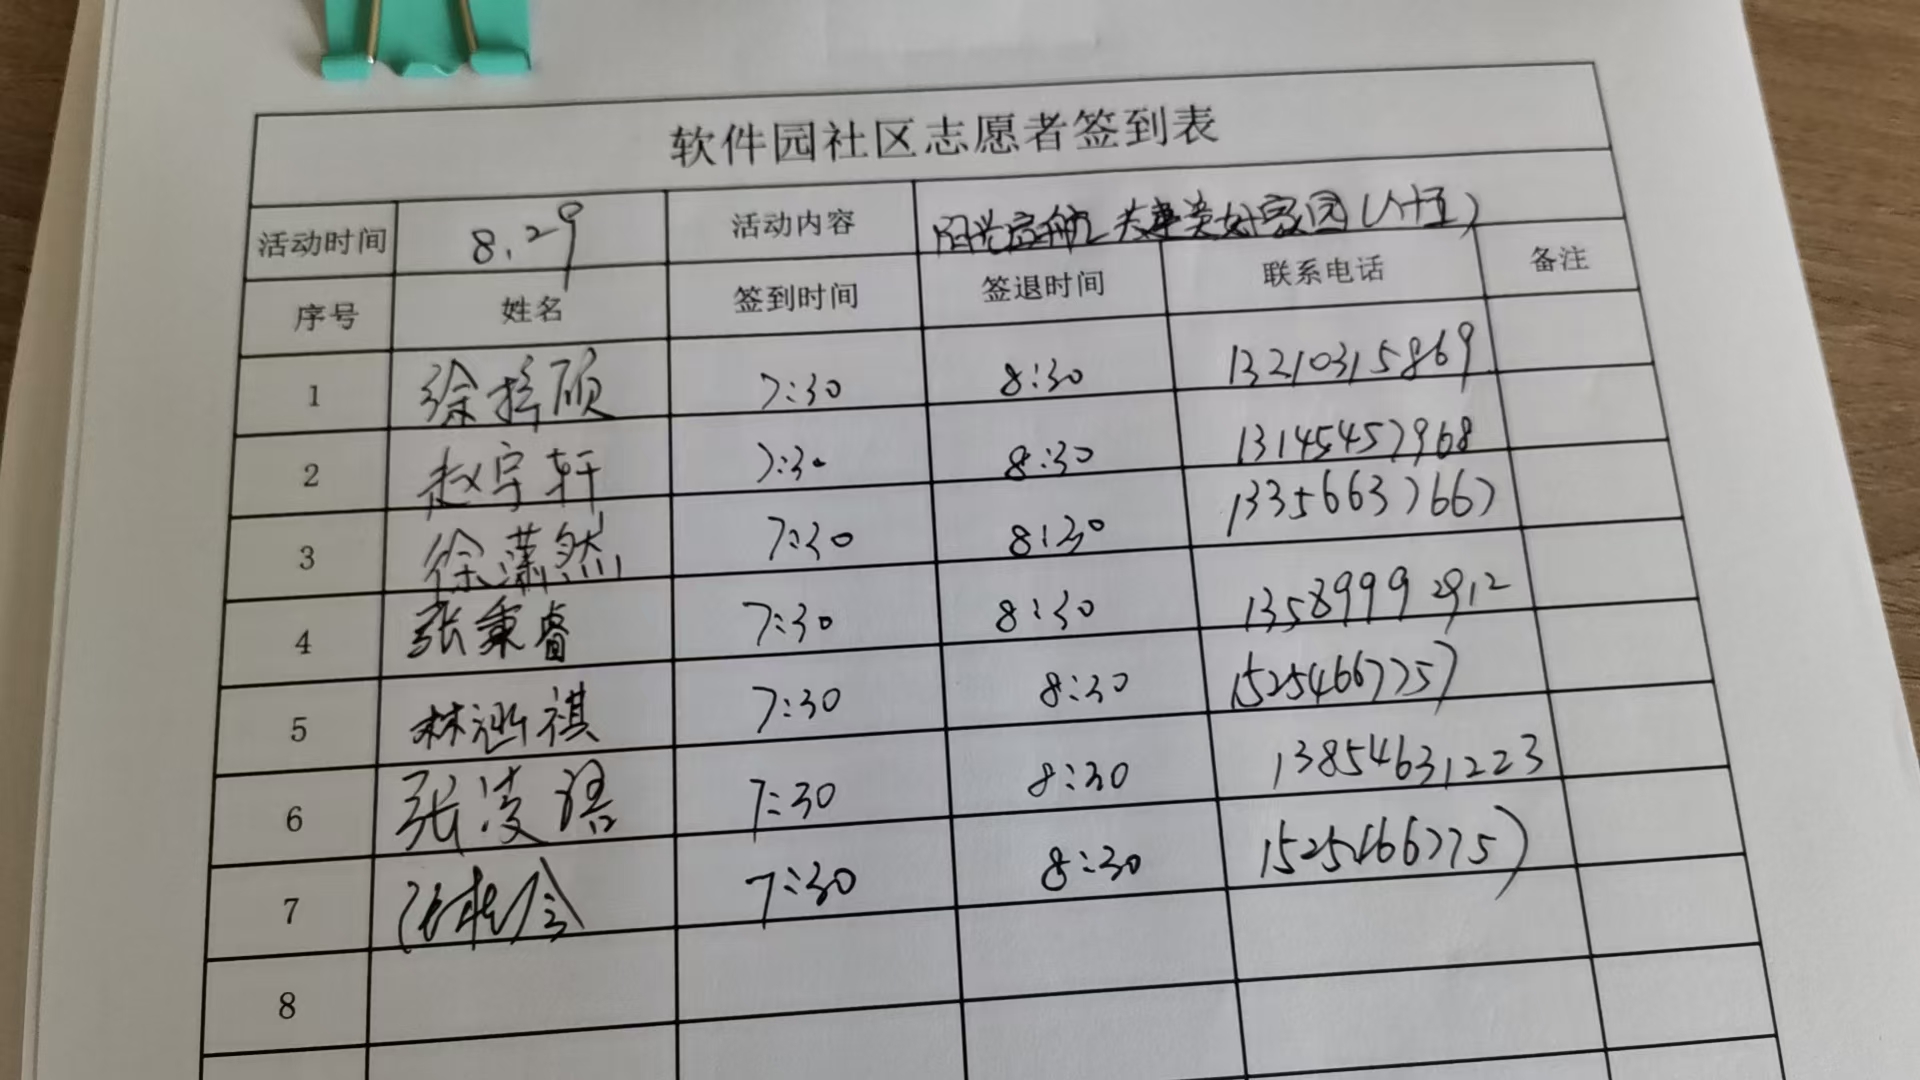 软件园社区志愿者签到表
活动时间 8.29 活动内容 阳光启航 共建美好家园(八十五)
序号 姓名 签到时间 签退时间 联系电话 备注
1 徐梓硕 7:30 8:30 13210315869
2 赵宇轩 7:30 8:30 13145457968
3 徐潇然 7:30 8:30 13356637667
4 张秉睿 7:30 8:30 13589992912
5 林逊祺 7:30 8:30 15254667757
6 张凌语 7:30 8:30 13854631223
7 7:30 8:30 15254667757
8